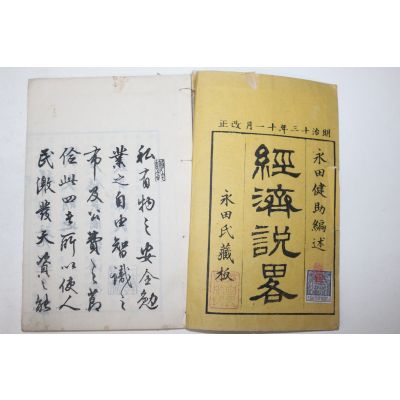 明治十三年十一月改正
永田健助編述
經濟說畧
永田氏藏板
私有物之安全勉
業之自由智識之
布及公費之節
儉此四者所以使人
民激發天資之能